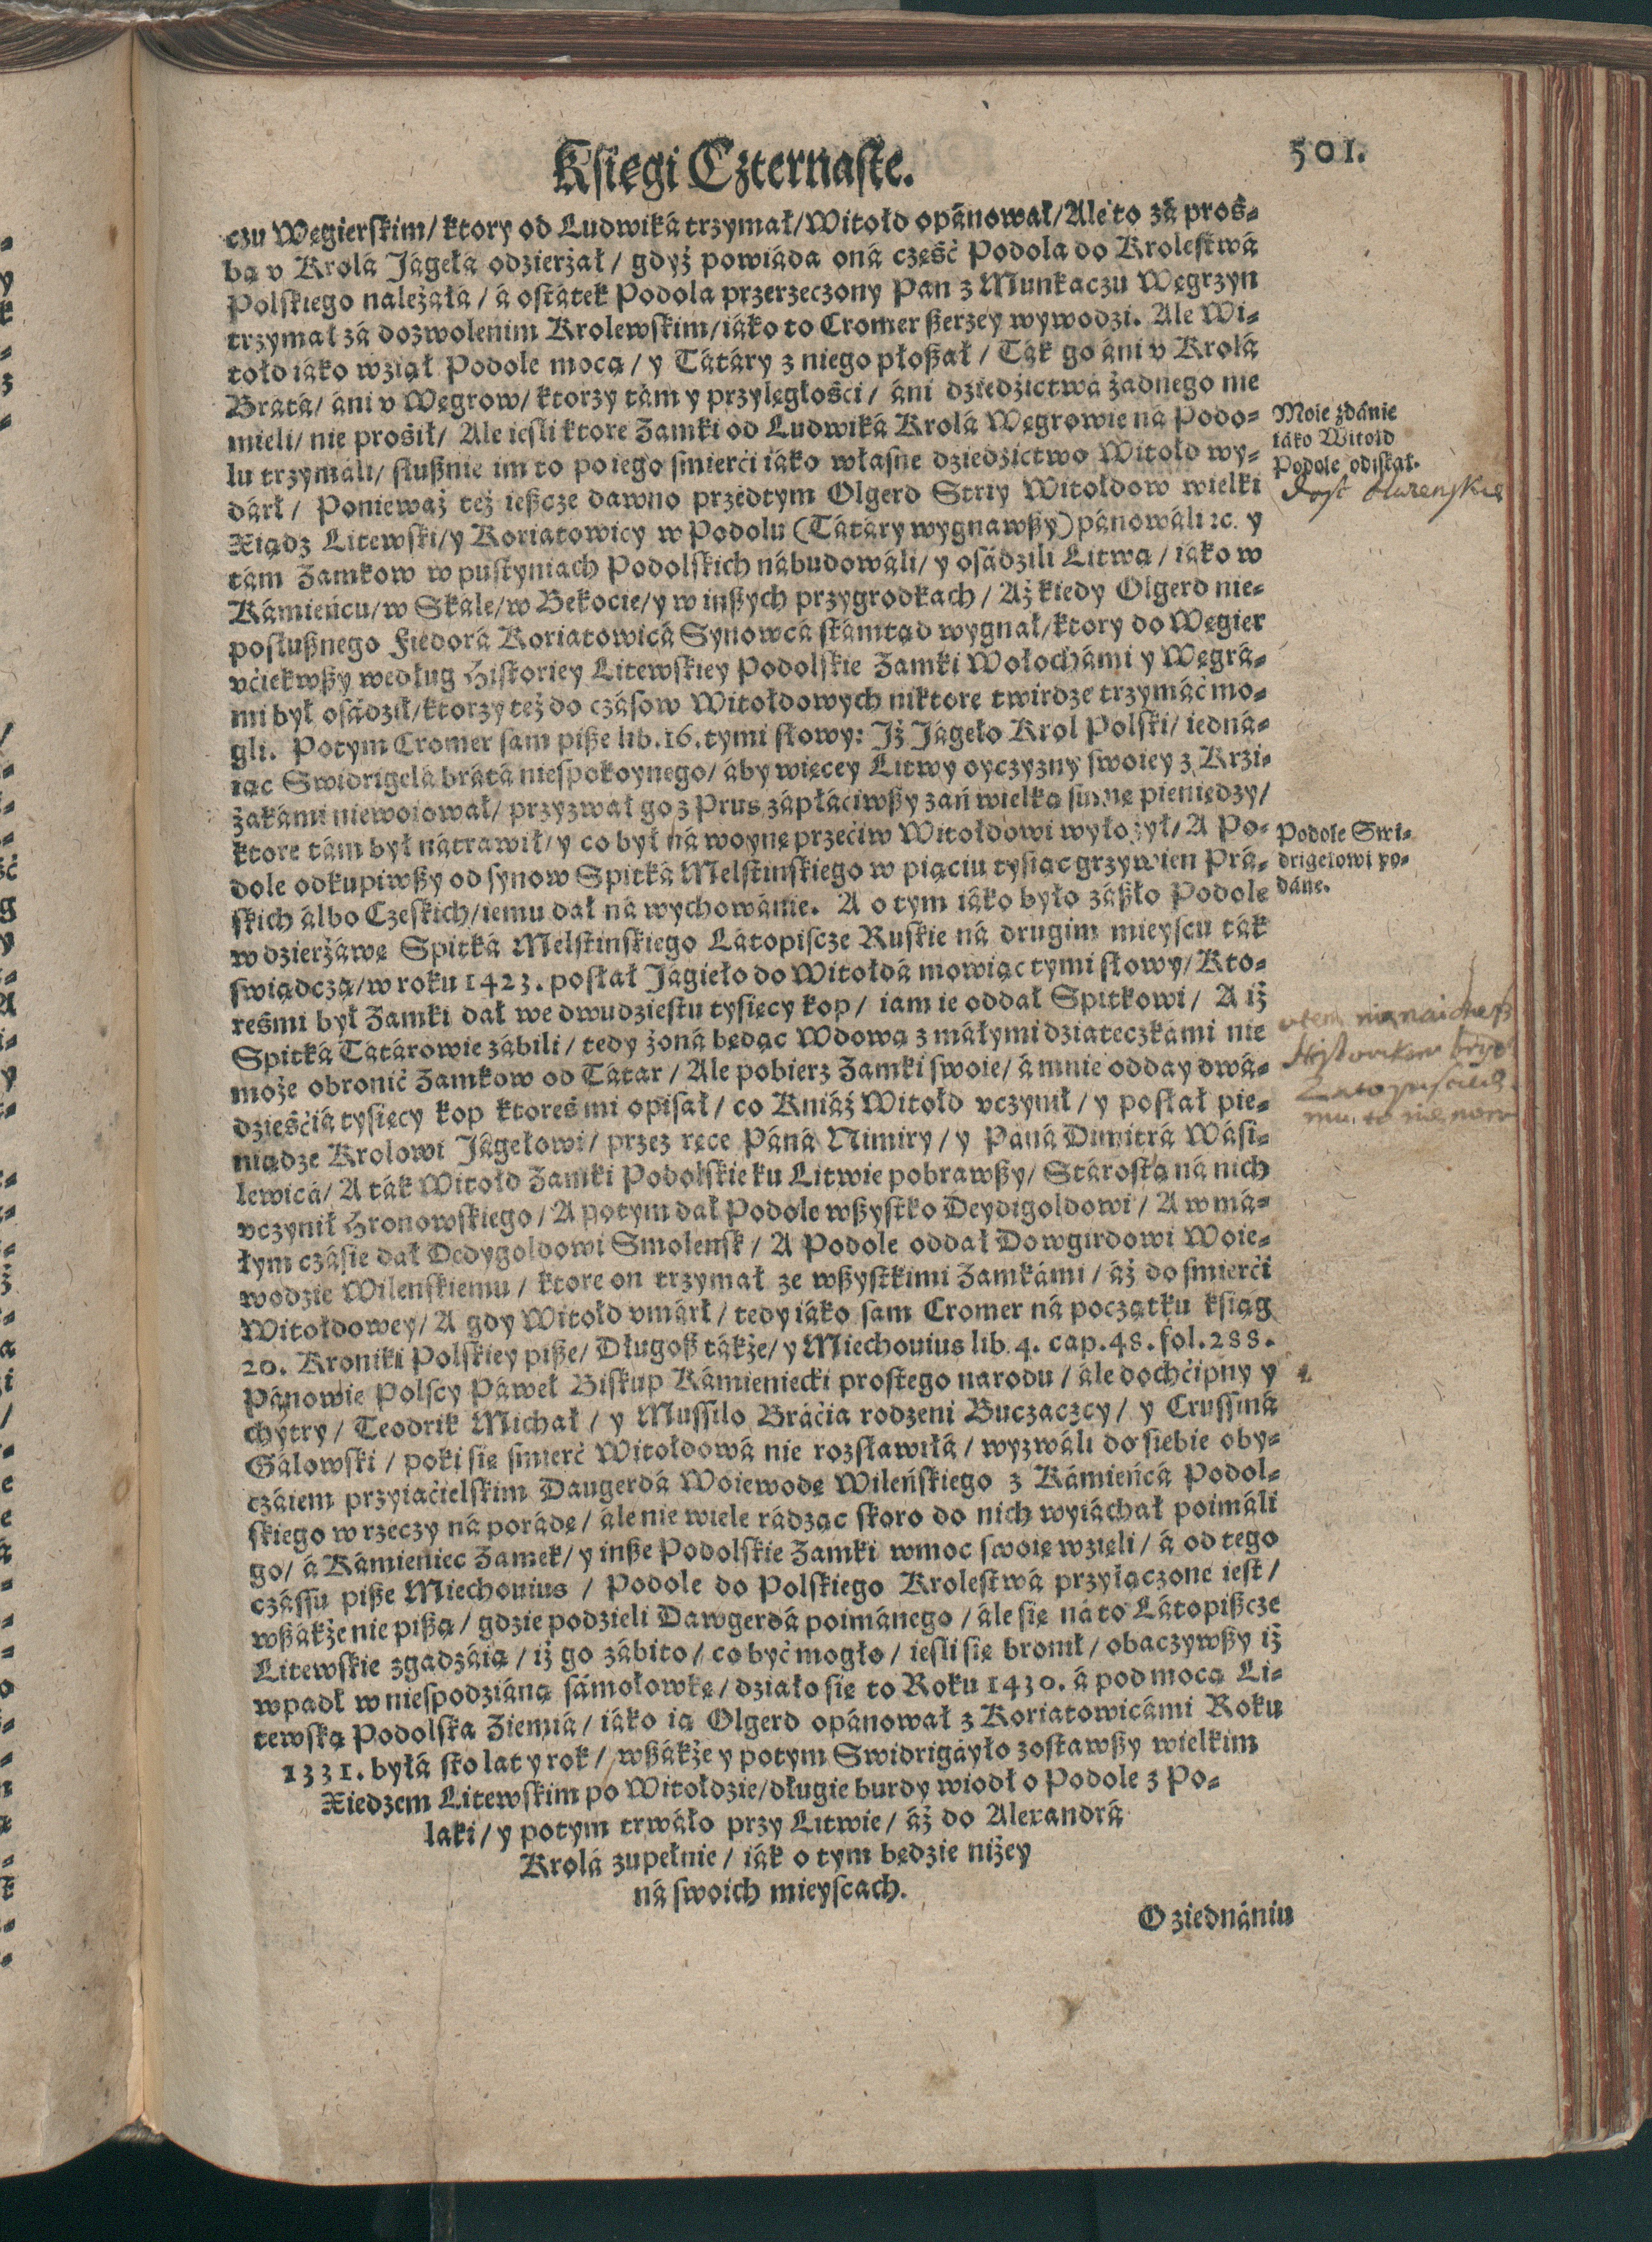 Księgi Czternaste.
501.
czu Węgierskim/ ktory od Ludwiká trzymał/ Witołd opánował/ Ale to zá proś-
bą v Krolá Jágełá odzierżał/ gdyż powiáda oná część Podola do Krolestwá
Polskiego należáłá/ á ostátek Podola przerzeczony Pan z Munkaczu Węgrzyn
trzymał zá dozwolenim Krolewskim/ iáko to Cromer ßerzey wywodzi. Ale Wi-
tołd iáko wziął Podole mocą/ y Tátáry z niego płoßał/ Ták go áni v Krolá
Brátá/ áni v Węgrow/ ktorzy tám y przyległości/ áni dziedzictwá żadnego nie
mieli/ nie prosił/ Ale iesli ktore Zamki od Ludwiká Krolá Węgrowie ná Podo-
lu trzymáli/ słußnie im to po iego śmierći iáko własne dziedzictwo Witołd wy-
dárł/ Ponieważ też ießcze dawno przedtym Olgerd Stryy Witołdow wielki
Xiądz Litewski/ y Koriatowicy w Podolu (Tátáry wygnawßy) pánowáli ꝛc. y
tám Zamkow w pustyniach Podolskich nábudowáli/ y osádzili Litwą/ iáko w
Kámieńcu/ w Skále/ w Bekocie/ y w inßych przygrodkach/ Aż kiedy Olgerd nie-
posłußnego Fiedorá Koriatowicá Synowcá stámtąd wygnał/ ktory do Węgier
vćiekwßy według Historiey Litewskiey Podolskie Zamki Wołochámi y Węgrá-
mi był osádził/ ktorzy też do czásow Witołdowych niktore twirdze trzymáć mo-
gli. Potym Cromer sam piße lib. 16. tymi słowy: Jż Jágeło Krol Polski/ iedná-
iąc Swidrigelá brátá niespokoynego/ áby więcey Litwy oyczyzny swoiey z Krzi-
żakámi niewoiował/ przyzwał go z Prus zápłáciwßy zań wielką summę pieniędzy/
ktore tám był nátrawił/ y co był ná woynę przećiw Witołdowi wyłożył/ A Po-
dole odkupiwßy od synow Spitká Melstinskiego w piąciu tysiąc grzywien Prá-
skich álbo Czeskich/ iemu dał ná wychowánie. A o tym iáko było záßło Podole
w dzierżáwę Spitká Melstinskiego Látopiscze Ruskie ná drugim mieyscu ták
swiádczą/ w roku 1423. posłał Jágieło do Witołdá mowiąc tymi słowy/ Kto-
reśmi był Zamki dał we dwudziestu tysięcy kop/ iam ie oddał Spitkowi/ A iż
Spitká Tátárowie zábili/ tedy żoná będąc Wdową z máłymi dziateczkámi nie
może obronić Zamkow od Tátar/ Ale pobierz Zamki swoie/ á mnie odday dwá-
dzieśćiá tysięcy kop ktoreś mi opisał/ co Kniáź Witołd vczynił/ y posłał pie-
niądze Krolowi Jágełowi/ przez ręce Páná Nimiry/ y Páná Dimitrá Wási-
lewicá/ A ták Witołd Zamki Podolskie ku Litwie pobrawßy/ Stárostą ná nich
vczynił Hronowskiego/ A potym dał Podole wßystko Deydigołdowi/ A w má-
łym czásie dał Dedygoldowi Smolensk/ A Podole oddał Dowgirdowi Woie-
wodzie Wilenskiemu/ ktore on trzymał ze wßystkimi Zamkámi/ áż do śmierći
Witołdowey/ A gdy Witołd vmárł/ tedy iáko sam Cromer ná początku kśiąg
20. Kroniki Polskiey piße/ Długoß tákże/ y Miechouius lib. 4. cap. 48. fol. 288.
Pánowie Polscy Páweł Biskup Kámieniecki prostego narodu/ ále dochćipny y
chytry/ Teodrik Michał/ y Mussilo Bráćia rodzeni Buczaczcy/ y Crussiná
Gálowski/ poki się śmierć Witołdowá nie rozsławiłá/ wyzwáli do siebie oby-
czáiem przyiaćielskim Daugerdá Woiewodę Wileńskiego z Kámieńcá Podol-
skiego w rzeczy ná porádę/ ále nie wiele rádząc skoro do nich wyiáchał poimáli
go/ á Kámieniec Zamek/ y inße Podolskie Zamki w moc swoię wzięli/ á od tego
czássu piße Miechouius/ Podole do Polskiego Krolestwá przyłączone iest/
wßákże nie pißą/ gdzie podzieli Dawgerdá poimánego/ ále się ná to Látopißcze
Litewskie zgadzáią/ iż go zábito/ co być mogło/ iesli się bronił/ obaczywßy iż
wpadł w niespodzianą sámołowkę/ działo się to Roku 1430. á pod mocą Li-
tewską Podolska Ziemiá/ iáko ią Olgerd opánował z Koriatowicámi Roku
1331. byłá sto lat y rok/ wßákże y potym Swidrigáyło zostawßy wielkim
Xiedzem Litewskim po Witołdzie/ długie burdy wiodł o Podole z Po-
laki/ y potym trwáło przy Litwie/ áż do Alexandrá
Krolá zupełnie/ iák o tym będzie niżey
ná swoich mieyscach.
O ziednániu
Moie zdánie
iáko Witołd
Podole odiskał.
Podole Swi-
drigelowi po-
dáne.